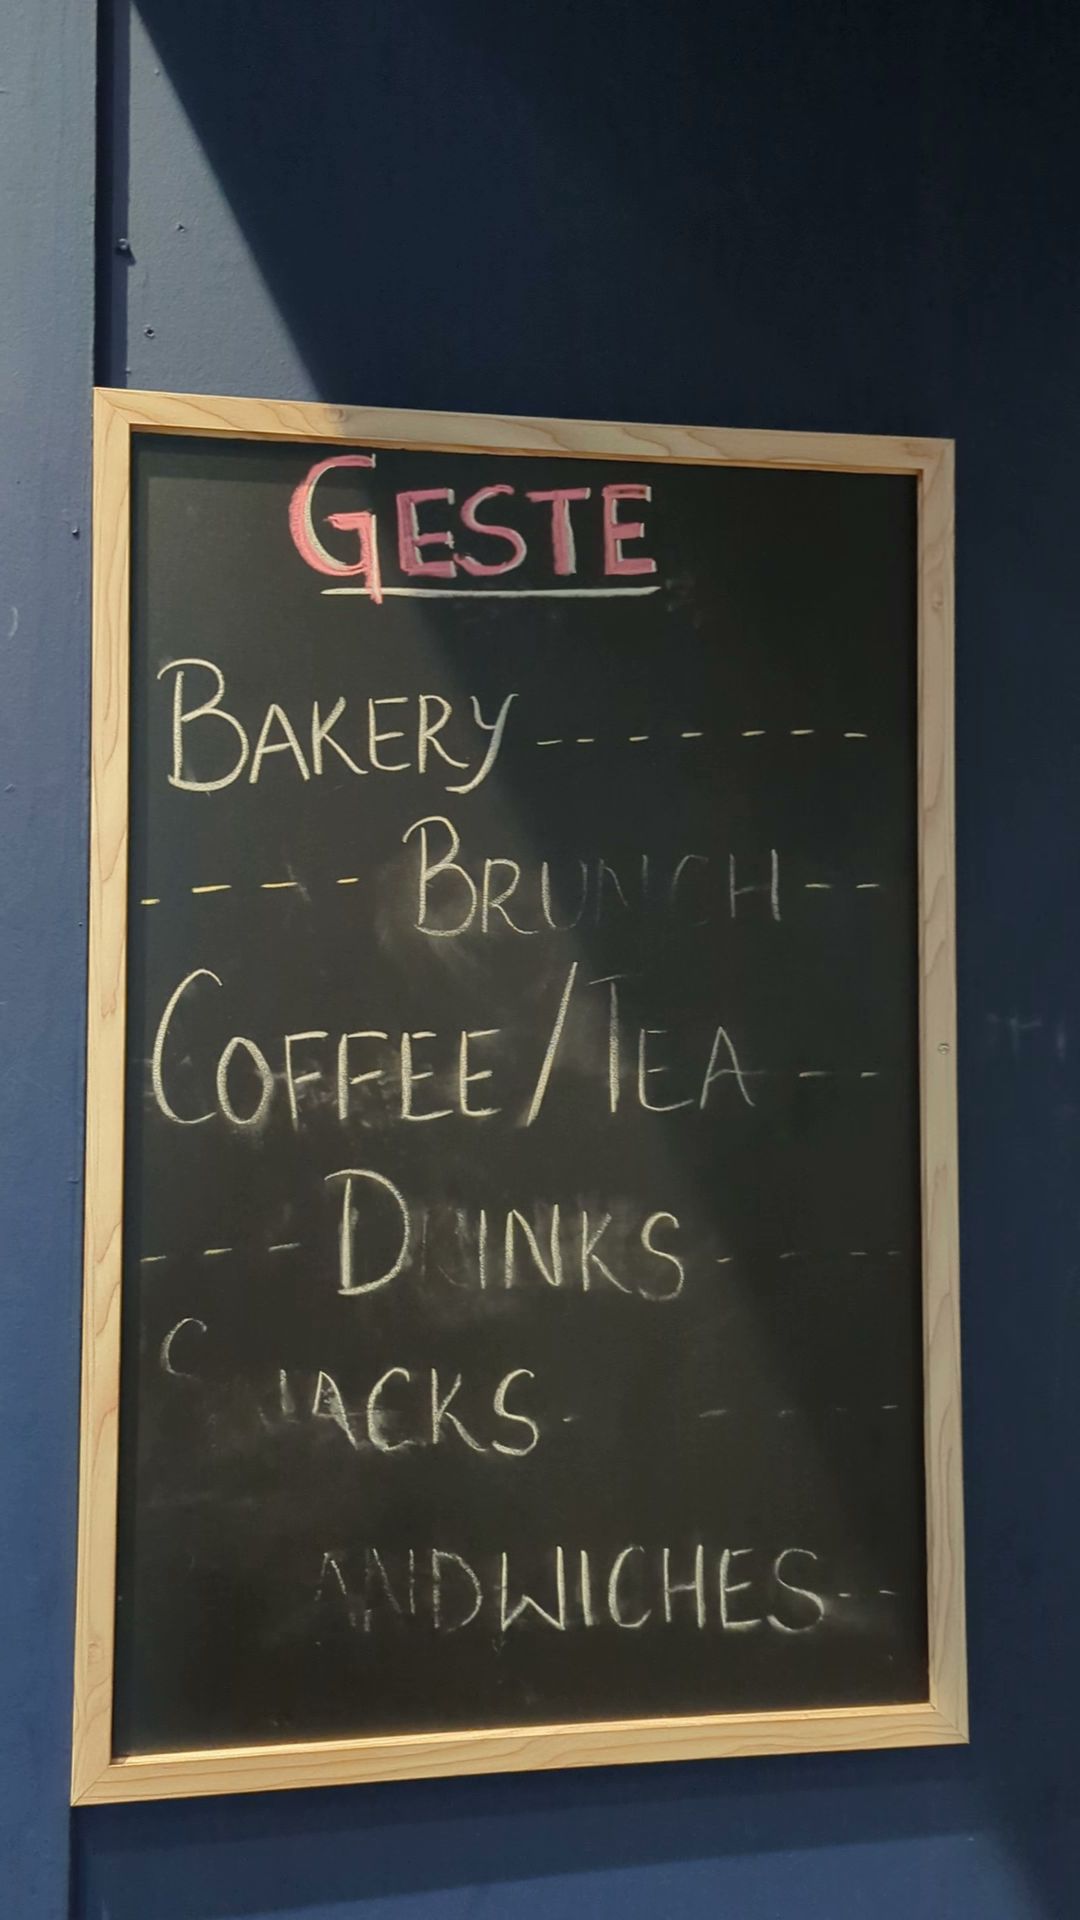 GESTE
BAKERY-------
----BRUNCH--
COFFEE/TEA--
---DRINKS----
SNACKS----
SANDWICHES--